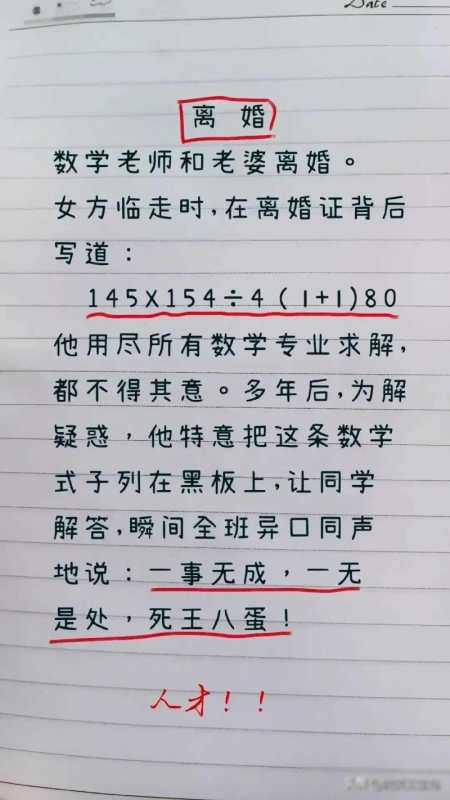 Date
离婚
数学老师和老婆离婚。
女方临走时,在离婚证背后
写道:
145X154÷4(1+1)80
他用尽所有数学专业求解,
都不得其意。多年后,为解
疑惑,他特意把这条数学
式子列在黑板上,让同学
解答,瞬间全班异口同声
地说:一事无成,一无
是处,死王八蛋!
人才!!